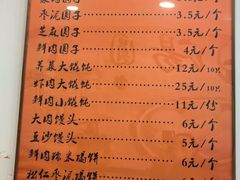 枣泥团子 3.5元/个
芝麻团子 3.5元/个
鲜肉团子 4元/个
荠菜大馄饨 12元/10只
虾肉大馄饨 25元/10只
鲜肉小馄饨 11元/份
大肉馒头 6元/个
豆沙馒头 6元/个
鲜肉瑞士塌饼 6元/个
松仁枣泥塌饼 6元/个